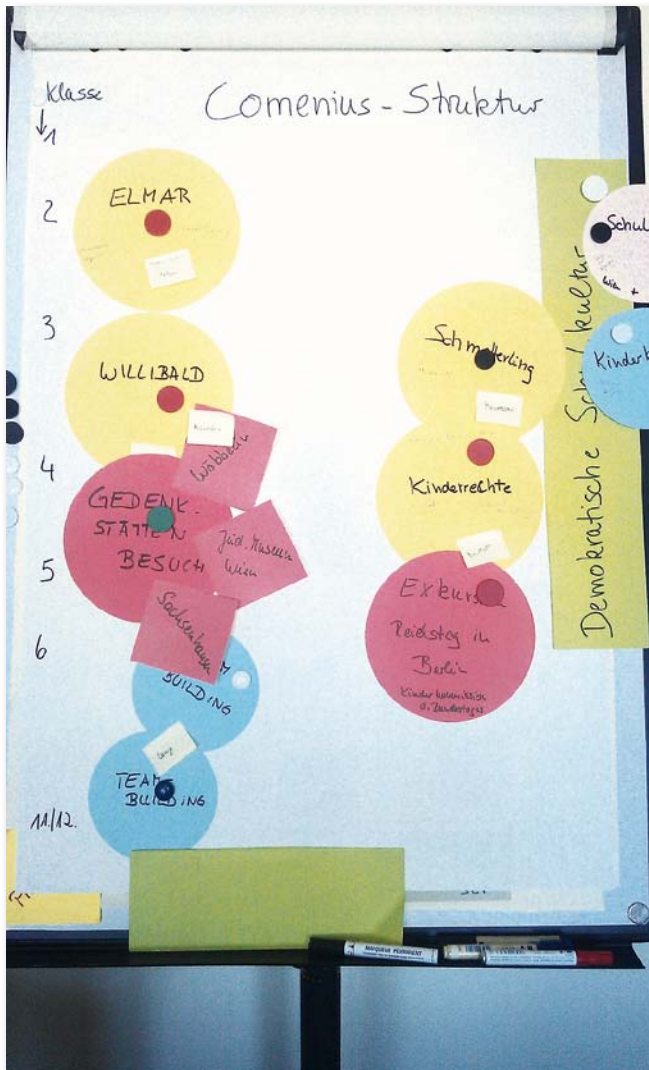 Klasse
Comenius-Struktur
1
2
ELMAR
3
WILLIBALD
4
Wöbbelin
GEDENK-
STÄTTEN
BESUCH
Jüd. Museum
Wien
5
Sachsenhausen
6
BUILDING
TEAM-
BUILDING
11./12.
Schmetterling
Kinderrechte
Exkursion
Reichstag in
Berlin
Kinderkommission
d. Bundestages
Demokratische Schulkultur
Schul
Wien +
Kinder
MARQUEUR PERMANENT